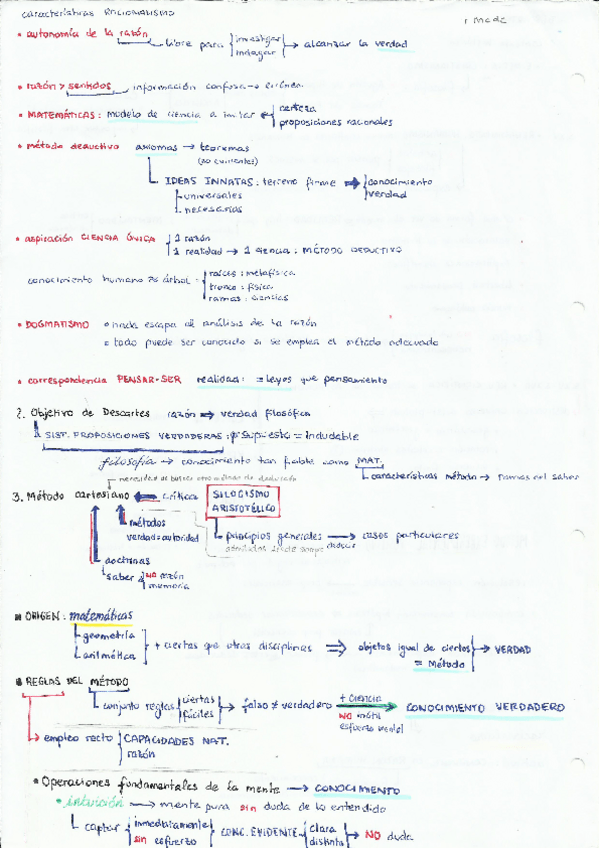 características RACIONALISMO
• autonomía de la razón
libre para investigar → alcanzar la verdad
indagar
• razón > sentidos información confusa → errónea
• MATEMÁTICAS: modelo de ciencia a imitar certeza
proposiciones racionales
• método deductivo axiomas → teoremas
IDEAS INNATAS: terreno firme → conocimiento
verdad
- universales
- necesarias
• aspiración CIENCIA ÚNICA 1 razón
1 realidad → 1 ciencia: MÉTODO DEDUCTIVO
conocimiento humano árbol raíces: metafísica
tronco: física
ramas: ciencias
• DOGMATISMO nada escapa al análisis de la razón
todo puede ser conocido si se emplea el método adecuado
• correspondencia PENSAR-SER realidad: = leyes que pensamiento
2. Objetivo de Descartes razón → verdad filosófica
SIST. PROPOSICIONES VERDADERAS: = indudable
filosofía → conocimiento tan fiable como MAT.
características método → ramas del saber
necesidad de buscar otro
3. Método cartesiano ← crítica SILOGISMO
ARISTOTÉLICO
métodos
verdad = autoridad
principios generales → casos particulares
doctrinas
saber NO razón
memoria
ORIGEN: matemáticas
geometría
aritmética
+ ciertas que otras disciplinas ⇒ objetos igual de ciertos → VERDAD
= Método
REGLAS DEL MÉTODO
conjunto reglas ciertas
fáciles
→ falso ≠ verdadero + ciencia → CONOCIMIENTO VERDADERO
NO inútil
esfuerzo mental
→ empleo recto CAPACIDADES NAT.
razón
• Operaciones fundamentales de la mente → CONOCIMIENTO
• intuición → mente pura sin duda de lo entendido
captar inmediatamente
sin esfuerzo
CONC. EVIDENTE clara
distinta
→ NO duda